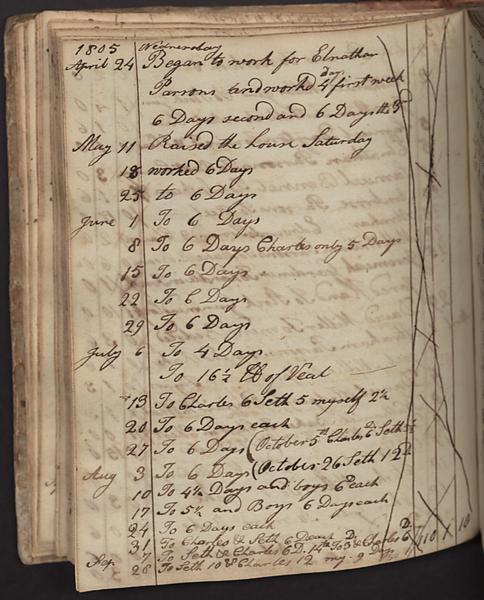 1805 Wednesday
April 24 Began to work for Elnathan
Parsons and worked 4 day first week
6 Days second and 6 Days the 3d
May 11 Raised the house Saturday
18 worked 6 Days
25 to 6 Days
June 1 To 6 Days
8 To 6 Days Charles only 5 Days
15 To 6 Days
22 To 6 Days
29 To 6 Days
July 6 To 4 Days
To 16½ lb of Veal
13 To Charles 6 Seth 5 myself 2½
20 To 6 Days each
27 To 6 Days (October 5th Charles 6 Seth
Aug 3 To 6 Days (October 26 Seth 12 D
10 To 4½ Days and boys 6 each
17 To 5½ and Boys 6 Days each
24 To 6 Days each
31 To Charles & Seth 6 Days
Sep 7 To Seth & Charles 6 D. 14th To 3 & Charles 6 D
28 To Seth 10 & Charles 12 my 9 Days
10 10